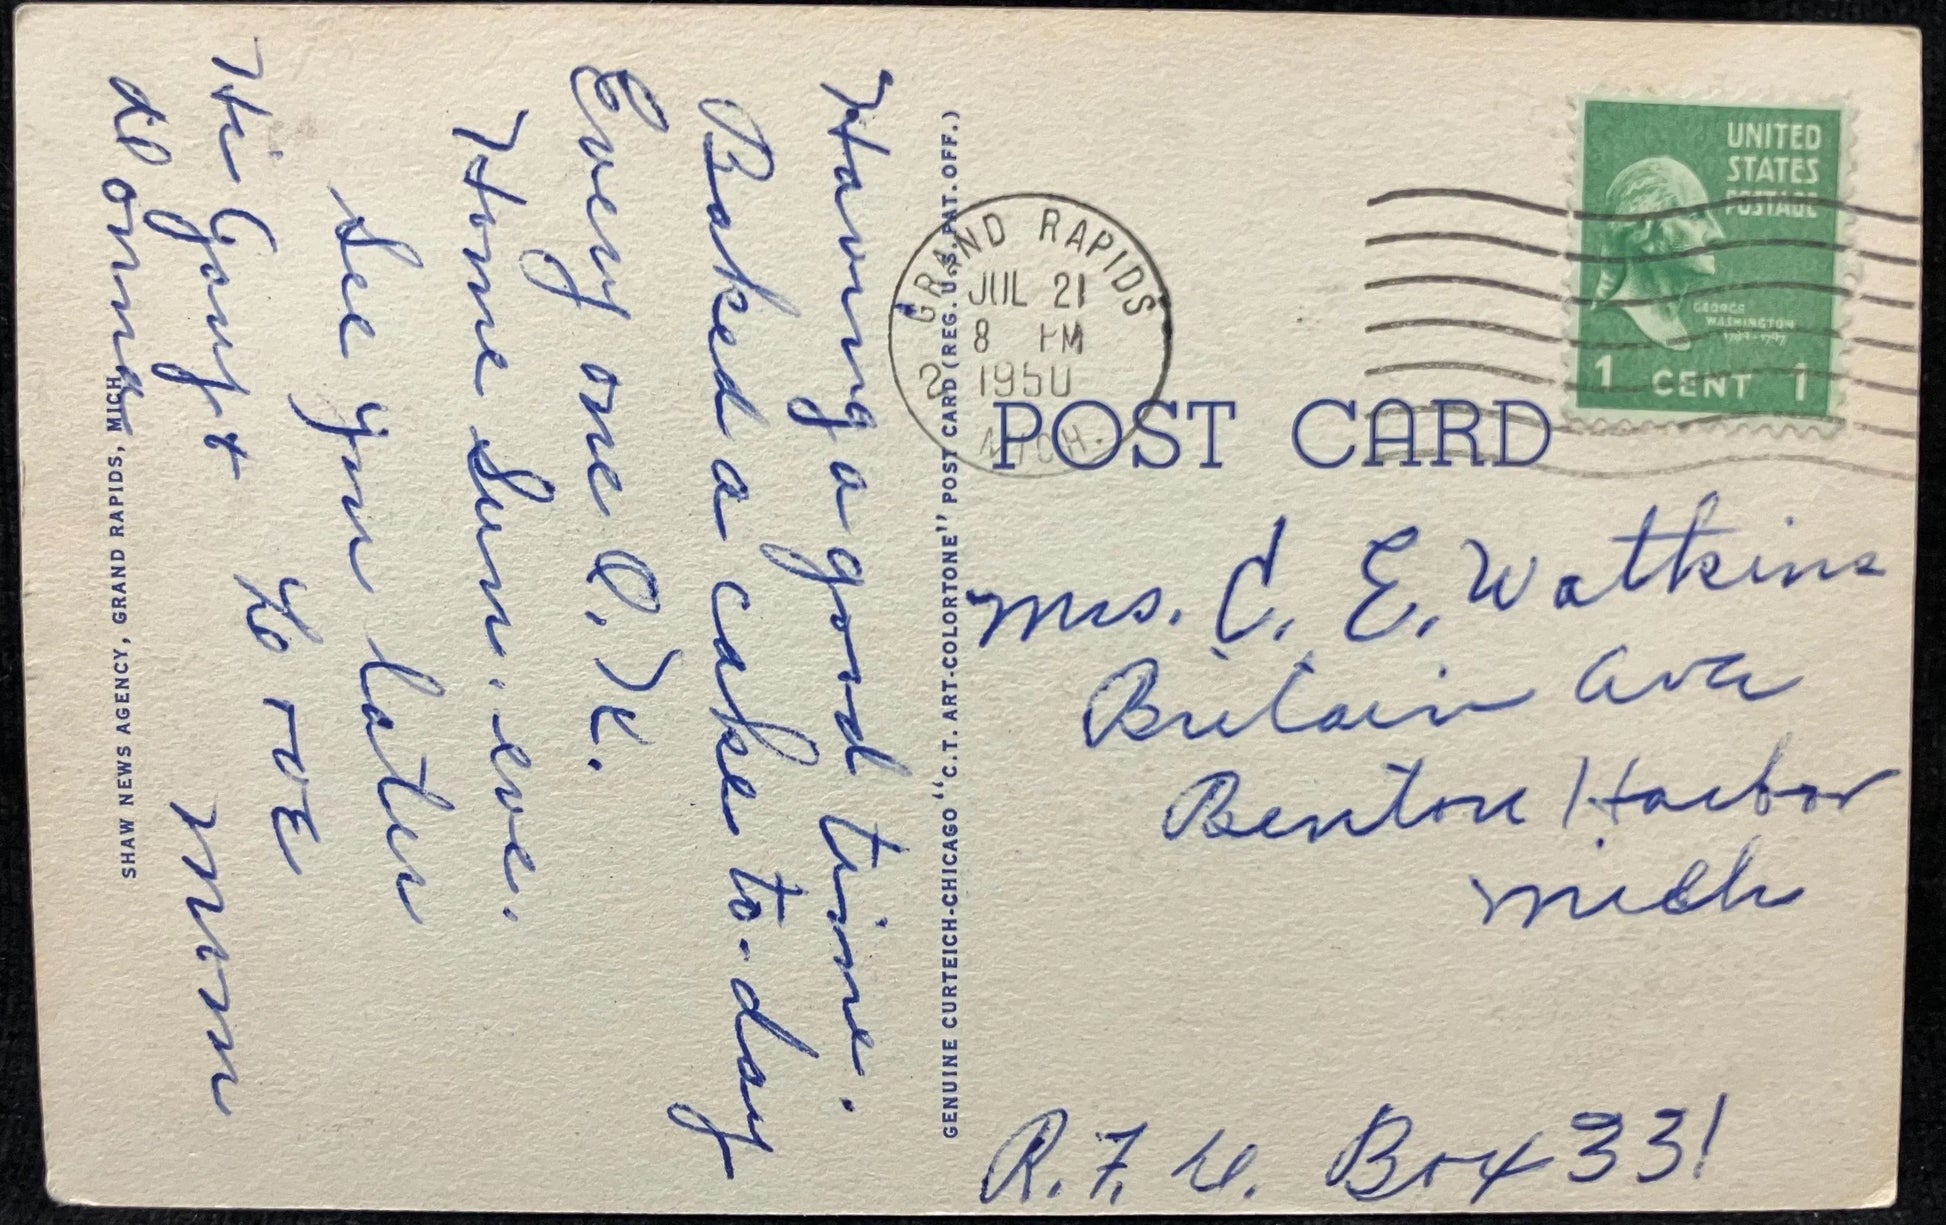 Having a good time.
Baked a cake to-day
Every one O.K.
Home Sun. eve.
See you later
Love
Mom
Hi Gary +
Donna
SHAW NEWS AGENCY, GRAND RAPIDS, MICH.
GENUINE CURTEICH-CHICAGO "C.T. ART-COLORTONE" POST CARD (REG. U.S. PAT. OFF.)
GRAND RAPIDS
JUL 21
8 PM
2 1950
MICH.
UNITED
STATES
POSTAGE
GEORGE
WASHINGTON
1 CENT 1
POST CARD
Mrs. C. E. Watkins
Britain Ave
Benton Harbor
Mich
R.F.D. Box 331